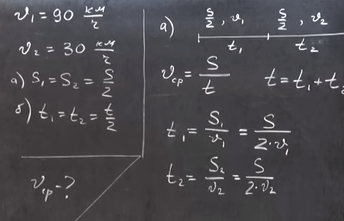 v₁ = 90 км/ч
v₂ = 30 км/ч
а) S₁ = S₂ = S/2
б) t₁ = t₂ = t/2
v ср - ?
а) S/2, v₁ S/2, v₂
t₁ t₂
v ср = S/t t = t₁ + t₂
t₁ = S₁/v₁ = S/2·v₁
t₂ = S₂/v₂ = S/2·v₂